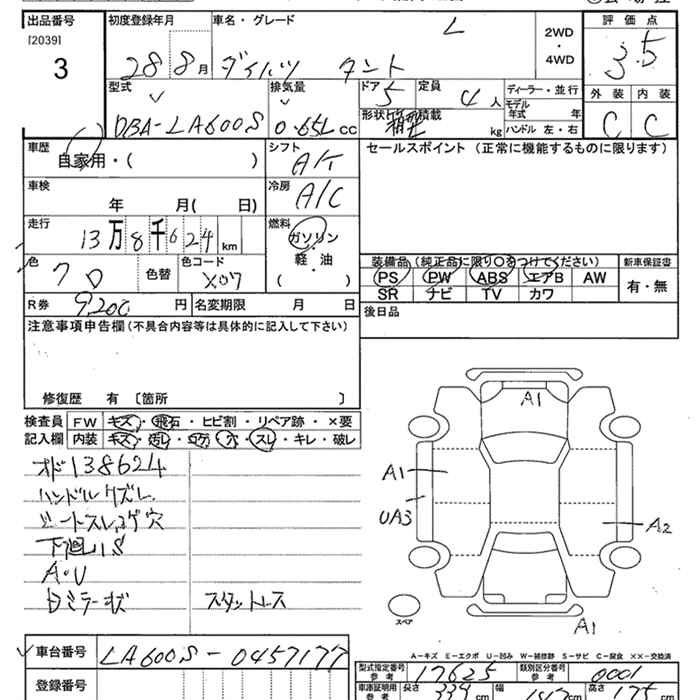 出品番号 初度登録年月 車名・グレード 2WD・4WD 評価点
[2039] L
3 28 8月 ダイハツ タント 3.5
型式 排気量 ドア 5 定員 4人 ディーラー・並行 外装 内装
DBA-LA600S 0.65L cc 形状 箱型 積載 kg モデル年式 年 C C
ハンドル 左・右
車歴 自家用・( ) シフト A/T セールスポイント(正常に機能するものに限ります)
車検 年 月( 日) 冷房 A/C
走行 13万8千624km 燃料 ガソリン・軽・油 ( )
色 クロ 色替 色コード X07
装備品(純正品に限り○をつけてください) 新車保証書
PS PW ABS エアB AW 有・無
SR ナビ TV カワ
R券 9,200円 名変期限 月 日 後日品
注意事項申告欄(不具合内容等は具体的に記入して下さい)
修復歴 有 〔箇所 〕
検査員 FW キズ・飛石・ヒビ割・リペア跡・×要
記入欄 内装 キズ・汚レ・コゲ・穴・スレ・キレ・破レ
オド138624
ハンドルクズレ
シートスレコゲ穴
下廻りS
A・U
スタットレス
A1
A1
UA3
A2
スペア
A1
A-キズ E-エクボ U-凹み W-補修跡 S-サビ C-腐食 ××-交換済
車台番号 LA600S-0457177
登録番号
型式指定番号 参考 17625 類別区分番号 参考 0001
車庫証明用 長さ 339cm 幅 147cm 高さ 175cm